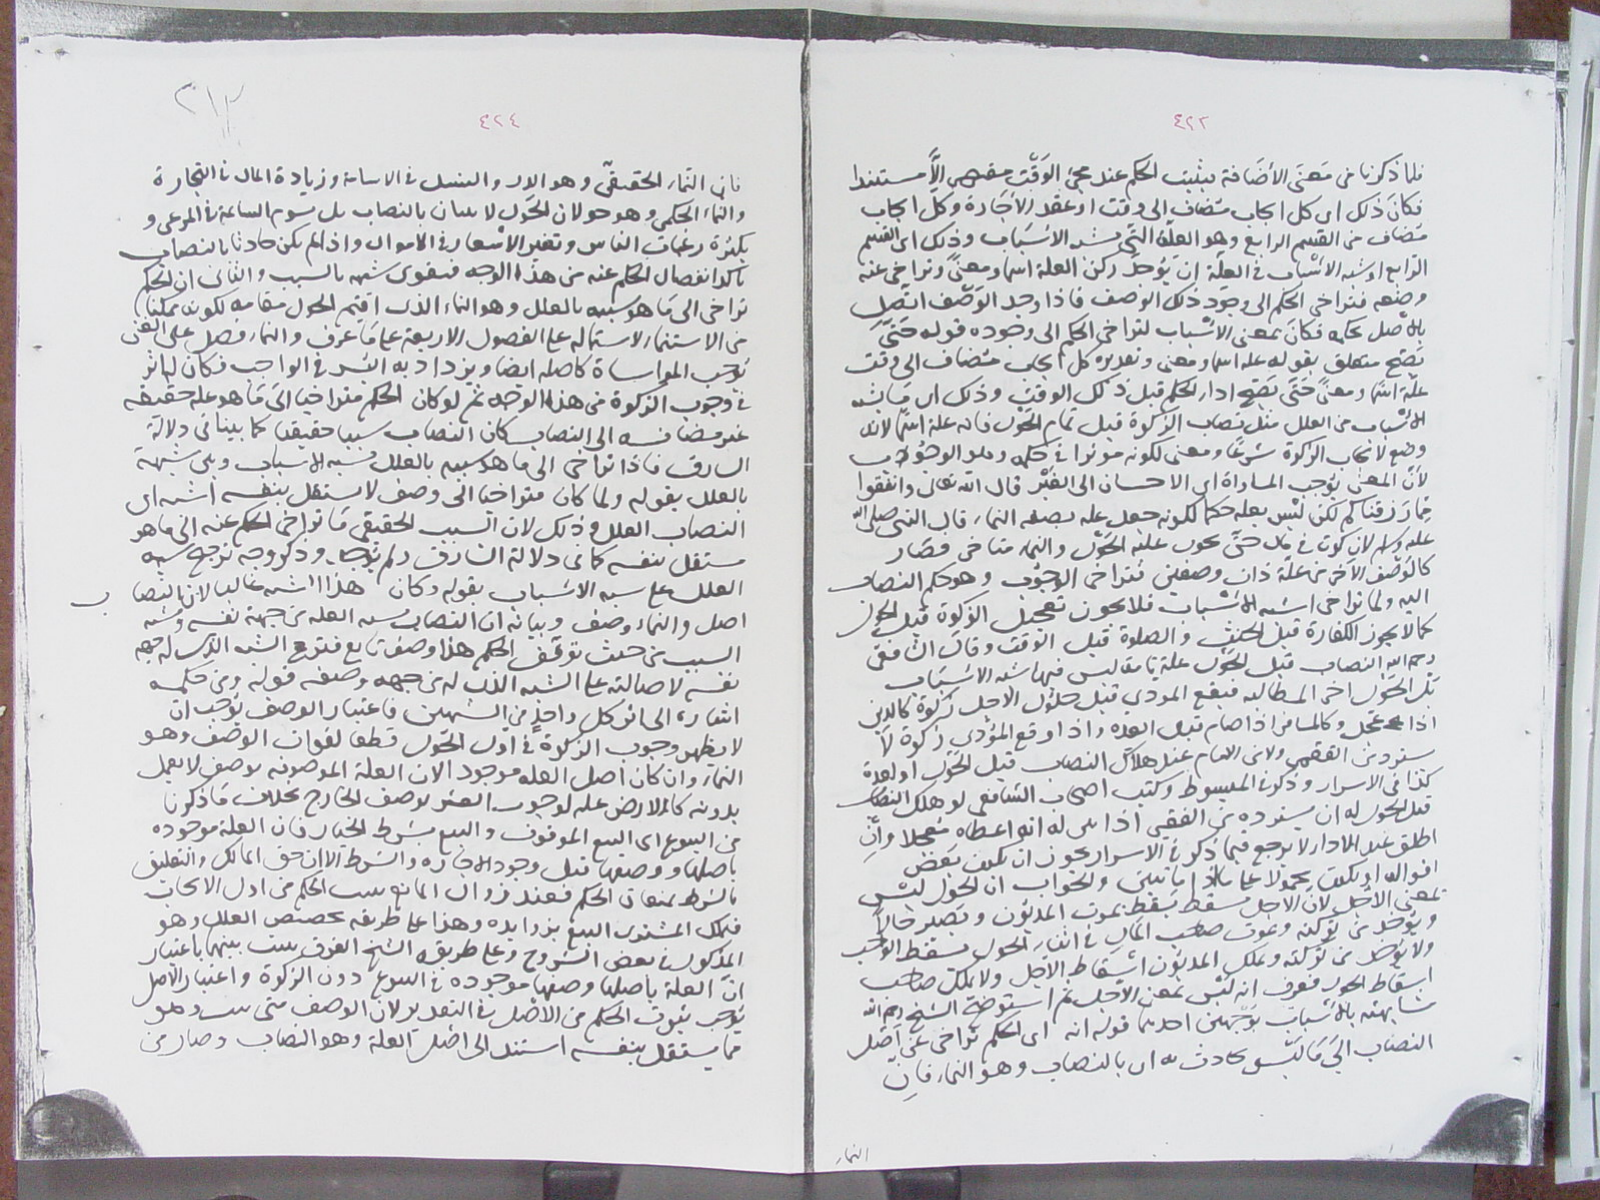 ٤٢٣
فلما ذكرنا من معنى الأضافة يثبت الحكم عند مجئ الوقت مقتصرا لا مستندا
فكان ذلك اى كل ايجاب مضاف الى وقت او عقد الاجارة وكل ايجاب
مضاف من القسم الرابع وهو العلة التى تشبه الاسباب وذلك اى القسم
الرابع او شبه الاسباب فى العلة ان يوجد ركن العلة اسما ومعنى وتراخى عنه
وصفه فتراخى الحكم الى وجود ذلك الوصف فاذا وجد الوصف اتصل
بالاصل بحكمه فكان بمعنى الاسباب لتراخى الحكم الى وجوده قوله حتى
يصح متعلق بقوله علة اسما ومعنى وتقديره كل ايجاب مضاف الى وقت
علة اسما ومعنى حتى يصح اداء الحكم قبل ذلك الوقت وذلك اى ما يشبه
الاسباب من العلل مثل نصاب الزكوة قبل تمام الحول فانه علة اسما لانه
وضع لايجاب الزكوة شرعا ومعنى لكونه موثرا فى حكمه وهو الوجوب
لان المعنى يوجب المساواة اى الاحسان الى الفقير قال الله تعالى وانفقوا
مما رزقناكم لكن ليس بعلة حكما لكونه جعل علة بصفة النماء قال النبى صلى الله
عليه وسلم لا زكوت فى مال حتى يحول عليه الحول والنماء متاخى فصار
كالوصف الآخر من علة ذات وصفين فتراخى الوجوب وهو حكم النصاب
اليه ولما تراخى اشبه الاسباب فلا يجوز تعجيل الزكوة قبل الحول
كما لا يجوز الكفارة قبل الحنث والصلوة قبل الوقت وقال الشافعى
رحمه الله النصاب قبل الحول علة تامة ليس فيها شبه الاسباب
بل الحول اخر المطالبة فيقع المودى قبل حلول الاجل زكوة كالدين
اذا عجل وكالمسافر اذا صام قبل العدة واذا وقع المؤدى زكوة لا
يسترد من الفقير ولا من الامام عند هلاك النصاب قبل الحول او بعده
كذا فى الاسرار وذكر فى المبسوط وكتب اصحاب الشافعى لو هلك النصاب
قبل الحول له ان يسترده من الفقير اذا بين له انه اعطاه معجلا وان
اطلق عند الاداء لا يرجع فيما ذكر فى الاسرار يجوز ان يكون بعض
اقواله او يكون محمولا على ما اذا لم يبين والجواب ان الحول ليس
بمعنى الاجل لان الاجل يسقط بموت المديون ويصير حالا
ويؤخذ من تركته وبموت صاحب المال فى اثناء الحول يسقط الواجب
ولا يؤخذ من تركته ويملك المديون اسقاط الاجل ولا يملك صاحب
اسقاط الحول فعرف انه ليس بمعنى الاجل ثم استوضح الشيخ رحمه الله
مشابهته بالاسباب بوجهين احدهما قوله انه اى الحكم تراخى عن اصل
النصاب الى ما ليس بحادث به اى بالنصاب وهو النماء فان
النماء
٢١٣
٤٢٤
فان النماء الحقيقى وهو الدر والنسل فى الاسامة وزيادة المال فى التجارة
والنماء الحكمى وهو حولان الحول لا يثبتان بالنصاب بل بسوم السائمة فى المرعى و
بكثرة رغبات الناس وتغير الاسعار فى الاموال واذا لم يكن حادثا بالنصاب
تاكد انفصال الحكم عنه من هذا الوجه فيقوى شبهه بالسبب والثانى ان الحكم
تراخى الى ما هو شبيه بالعلل وهو النماء الذى اقيم الحول مقامه لكونه ممكنا
من الاستنماء لاشتماله على الفصول الاربعة على ما عرف والنماء فضل على الغنى
يوجب المواساة كاصله ايضا ويزداد به اليسر فى الواجب فكان له اثر
فى وجوب الزكوة من هذا الوجه ثم لو كان الحكم متراخيا الى ما هو علة حقيقة
غير مضافة الى النصاب كان النصاب سببا حقيقيا كما بينا فى دلالة
السارق فاذا تراخى الى ما هو شبيه بالعلل فشبه الاسباب وبين شبهه
بالعلل بقوله ولما كان متراخيا الى وصف لا يستقل بنفسه اشبه اى
النصاب العلل وذلك لان السبب الحقيقى ما تراخى الحكم عنه الى ما هو
مستقل بنفسه كما فى دلالة السارق ولم يوجد وذكر وجه ترجيح شبه
العلل على شبه الاسباب بقوله وكان هذا الشبه غالبا لان النصاب
اصل والنماء وصف وبيانه ان النصاب يشبه العلة من جهة نفسه وشبه
السبب من حيث توقف الحكم هذا وصف تابع فترجح الشبه الذى له من جهة
نفسه لاصالته على الشبه الذى له من جهة وصفه قوله ومن حكمه
اشارة الى اثر كل واحد من الشبهين فاعتبار الوصف يوجب ان
لا يظهر وجوب الزكوة فى اول الحول قطعا لفوات الوصف وهو
النماء وان كان اصل العلة موجودا لان العلة الموصوفة بوصف لا يعمل
بدونه كالارض علة لوجوب العشر بوصف الخارج بخلاف ما ذكرنا
من البيوع اى البيع الموقوف والبيع بشرط الخيار فان العلة موجوده
باصلها ووصفها قبل وجود الاجازه والشرط الا ان حق المالك والتعليق
بالشرط يمنعان الحكم فعند زوال المانع يثبت الحكم من اول الايجاب
فيملك المشترى المبيع بزوايده وهذا على طريقه تخصيص العلل وهو
المذكور فى بعض الشروح وعلى طريقه الشيخ الفرق يثبت بينهما باعتبار
ان العلة باصلها ووصفها موجوده فى البيوع دون الزكوة واعتبار الاصل
يوجب ثبوت الحكم من الاصل فى التقدير لان الوصف متى ثبت وهو
مما يستقل بنفسه استند الى اصل العلة وهو النصاب وصار من